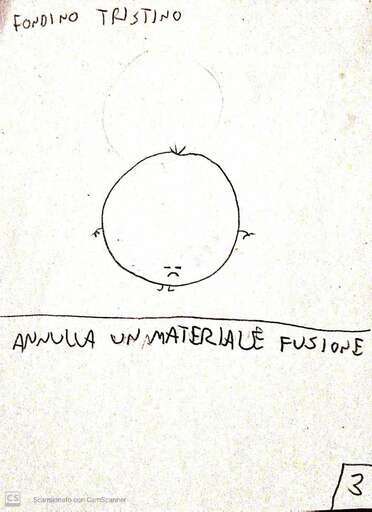 FONDINO TRISTINO
ANNULLA UN MATERIALE FUSIONE
3
CS Scansionato con CamScanner